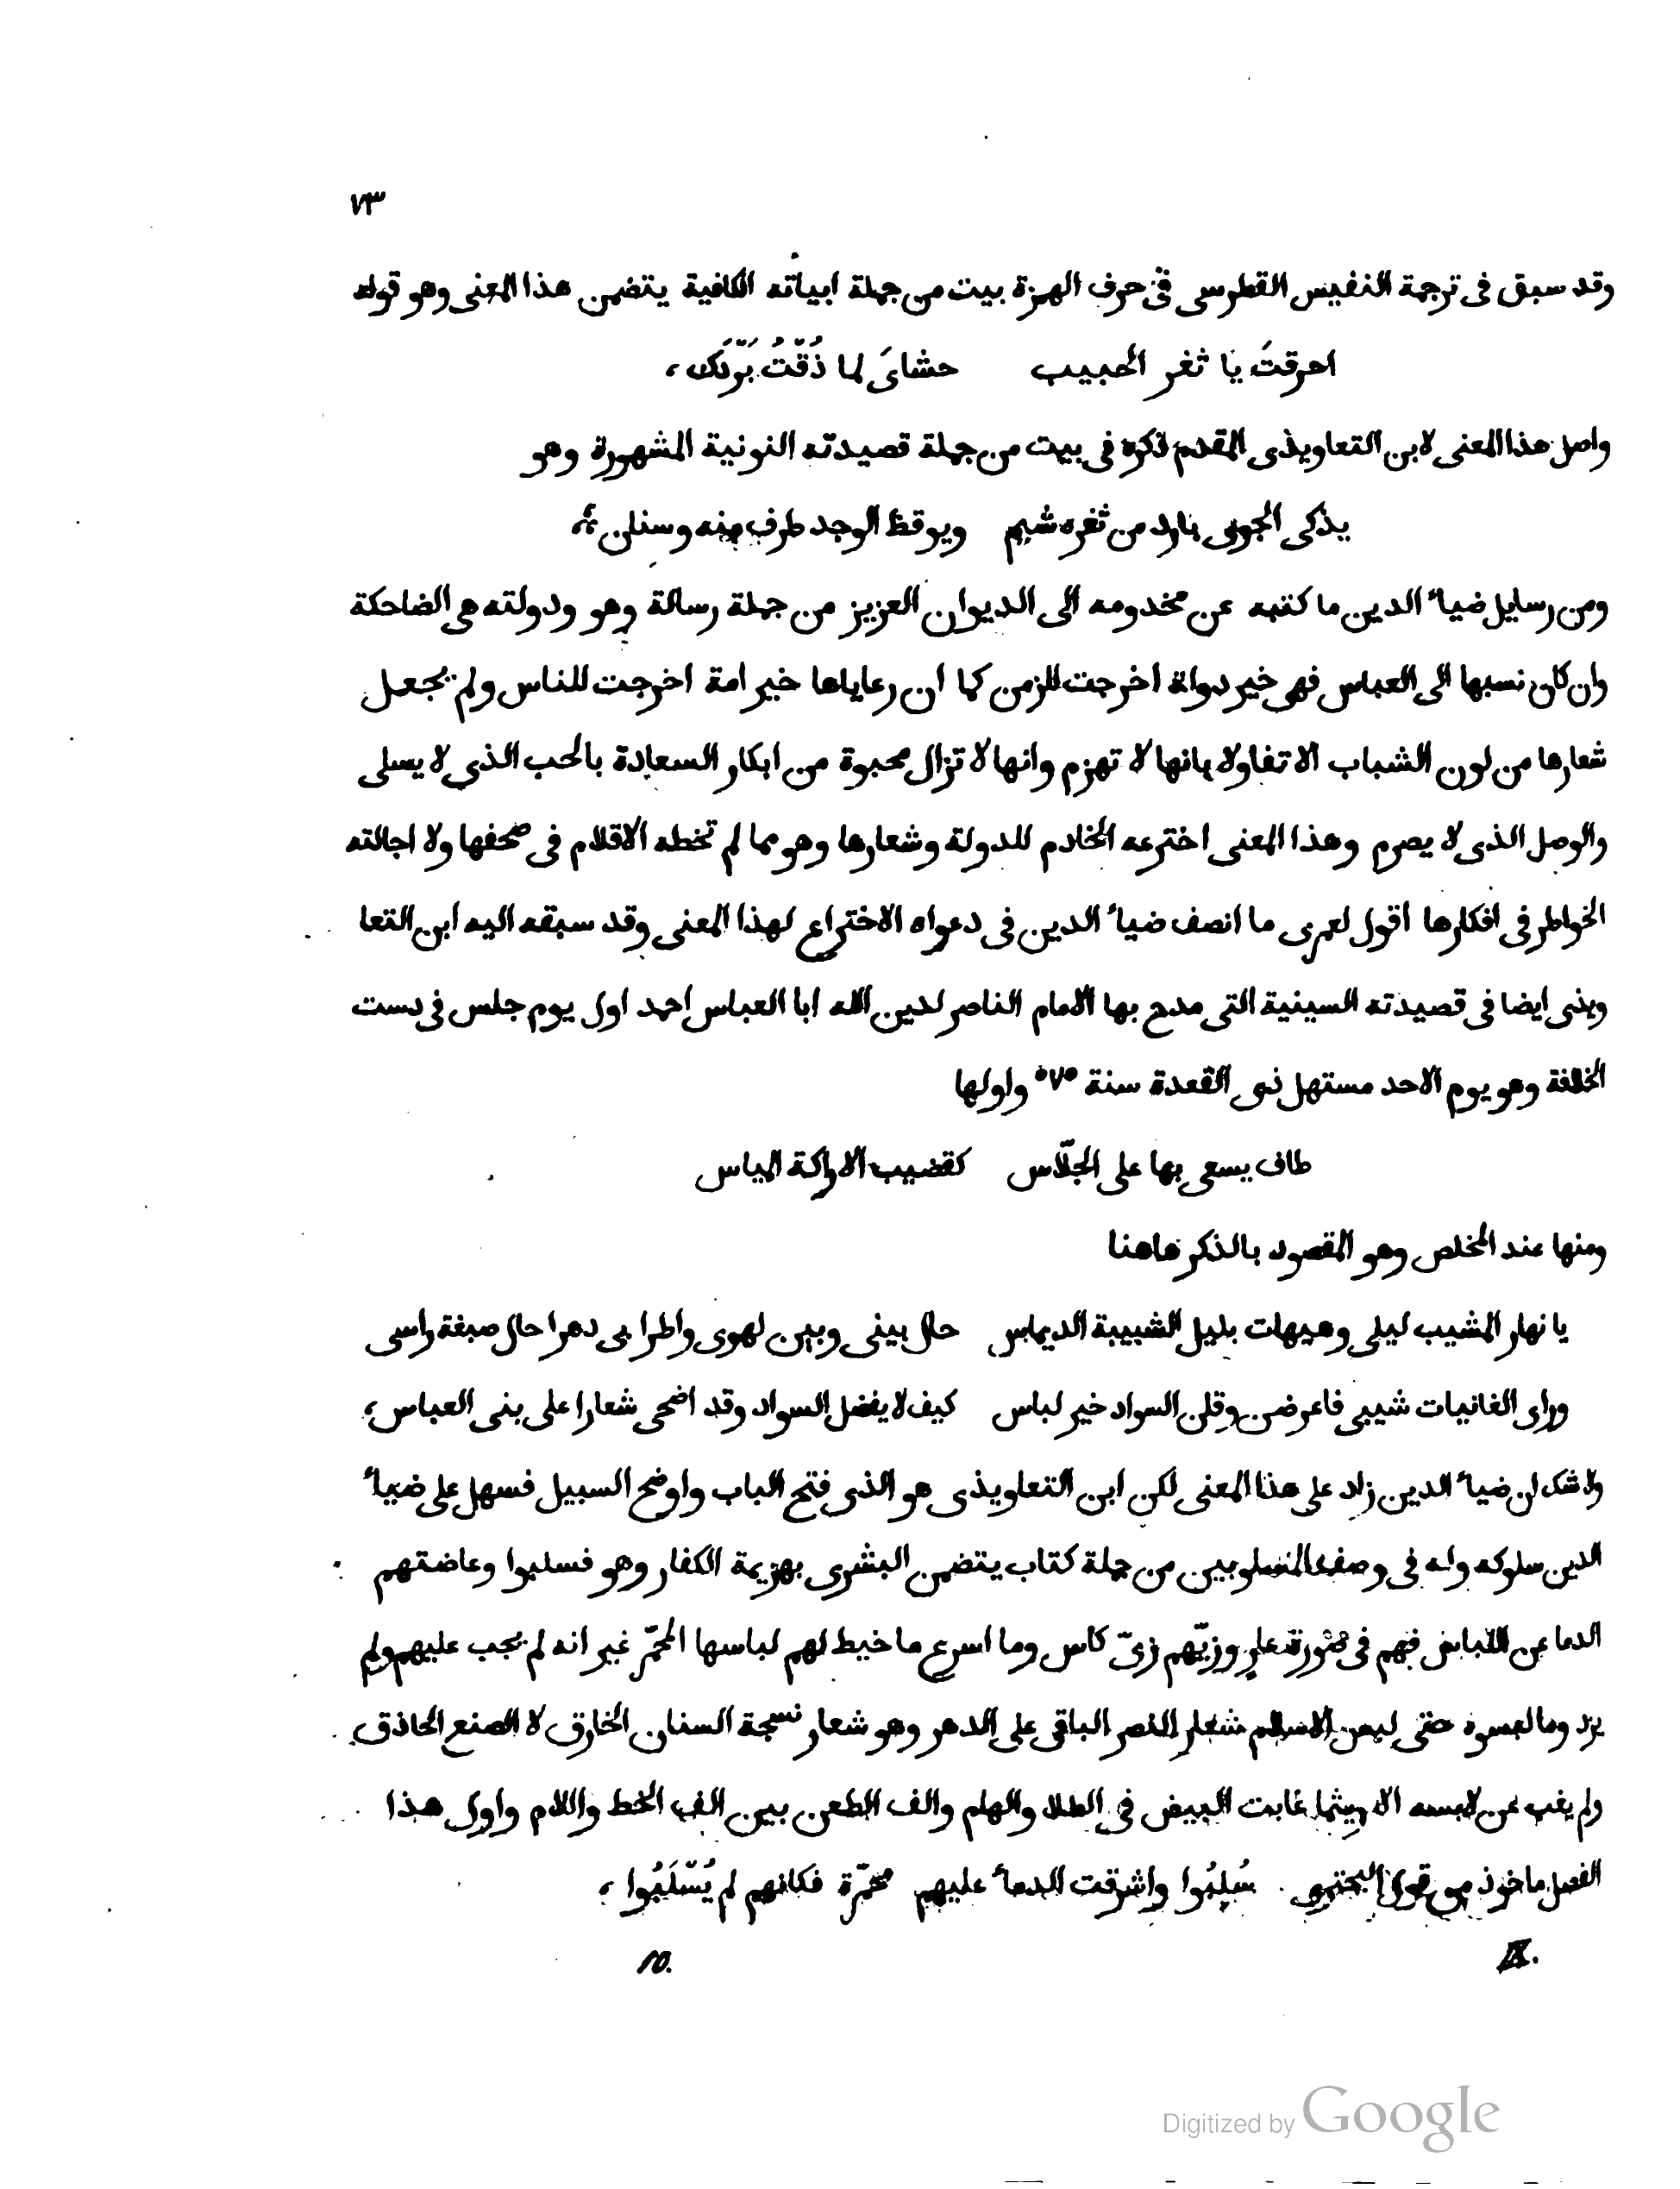 ٧٣
وقد سبق فى ترجمة النفيس القطرسى فى حرف الهمزة بيت من جملة ابياته الكافية يتضمن هذا المعنى وهو قوله
احرقتَ يا ثغر الحبيب حشاىَ لما ذُقْتُ بَرْدَكَ،
واصل هذا المعنى لابن التعاويذى المقدم ذكره فى بيت من جملة قصيدته النونية المشهورة وهو
يذكى الجوى بارد من ثغره شبم ويوقظ الوجد طرف منه وسنان
ومن رسايل ضياء الدين ما كتبه عن مخدومه الى الديوان العزيز من جملة رسالة وهو ودولته هى الضاحكة
وان كان نسبها الى العباس فهى خير دولة اخرجت للزمن كما ان رعاياها خير امة اخرجت للناس ولم يجعل
شعارها من لون الشباب الا تفاولا بانها لا تهزم وانها لا تزال محبوة من ابكار السعادة بالحب الذى لا يسلى
والوصل الذى لا يصرم وهذا المعنى اخترعه الخادم للدولة وشعارها وهو مما لم تخطه الاقلام فى صحفها ولا اجالته
الخواطر فى افكارها اقول لعمرى ما انصف ضياء الدين فى دعواه الاختراع لهذا المعنى وقد سبقه اليه ابن التعا
ويذى ايضا فى قصيدته السينية التى مدح بها الامام الناصر لدين الله ابا العباس احمد اول يوم جلس فى دست
الخلافة وهو يوم الاحد مستهل ذى القعدة سنة ٥٧٥ واولها
طاف يسعى بها على الجلّاس كقضيب الاراكة المياس
ومنها عند المخلص وهو المقصود بالذكر هاهنا
يا نهار المشيب ليلى وهيهات بليل الشبيبة الديماس حال بينى وبين لهوى واطرابى دهرا حال صبغة راسى
وراى الغانيات شيبى فاعرضن وقلن السواد خير لباس كيف لا يفضل السواد وقد اضحى شعارا على بنى العباس،
ولا شك ان ضياء الدين زاد على هذا المعنى لكن ابن التعاويذى هو الذى فتح الباب واوضح السبيل فسهل على ضياء
الدين سلوكه وله فى وصف المسلوبين من جملة كتاب يتضمن البشرى بهزيمة الكفار وهو فسلبوا وعاضتهم
الدما عن اللباس فهم فى صورة عارٍ وزيّهم زىّ كاس وما اسرع ما خيط لهم لباسها المحمّر غير انه لم يجب عليهم ولم
يزد وما لبسوه حتى لبس الاسلام شعار النصر الباقى على الدهر وهو شعار نسجة السنان الخارق لا الصنع الحاذق
ولم يغب عن لابسه الا ريثما غابت البيض فى الطلا والهام والف الطعن بين الف الخط واللام واول هذا
الفصل ماخوذ من قول البحترى سُلِبُوا واشرقت الدماء عليهم محمّرة فكانهم لم يُسْلَبُوا،
IX. 10.
Digitized by Google